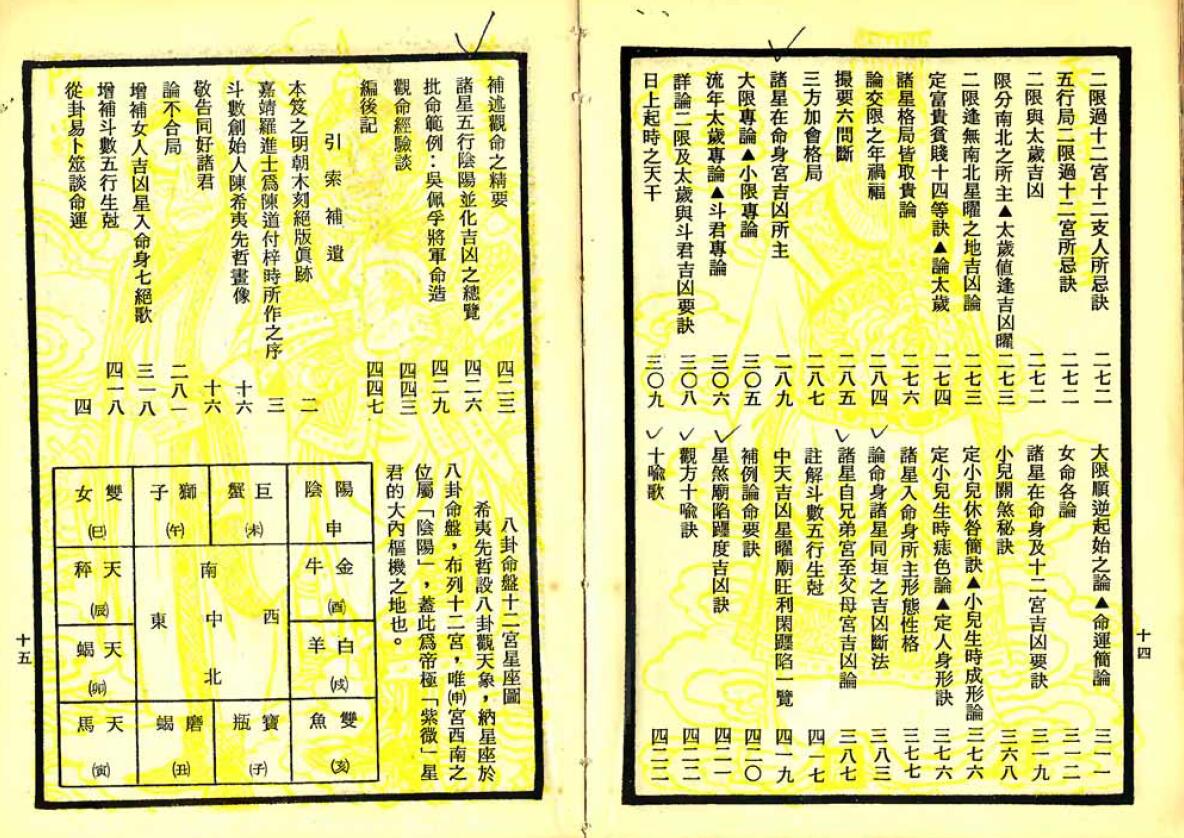 二限過十二宮十二支人所忌訣 二七二
五行局二限過十二宮所忌訣 二七二
二限與太歲吉凶 二七二
限分南北之所主▲太歲値逢吉凶曜 二七三
二限逢無南北星曜之地吉凶論 二七三
定富貴貧賤十四等訣▲論太歲 二七四
諸星格局皆取貴論 二七六
論交限之年禍福 二八四
撮要六問斷 二八五
三方加會格局 二八七
諸星在命身宮吉凶所主 二八九
大限專論▲小限專論 三〇五
流年太歲專論▲斗君專論 三〇六
詳論二限及太歲與斗君吉凶要訣 三〇八
日上起時之天干 三〇九
大限順逆起始之論▲命運簡論 三一一
女命各論 三一二
諸星在命身及十二宮吉凶要訣 三一九
小兒關煞秘訣 三六八
定小兒休咎簡訣▲小兒生時成形論 三七六
定小兒生時痣色論▲定人身形訣 三七六
諸星入命身所主形態性格 三七七
論命身諸星同垣之吉凶斷法 三八三
諸星自兄弟宮至父母宮吉凶論 三八七
註解斗數五行生尅 四一七
中天吉凶星曜廟旺利閑躔陷一覽 四一九
補例論命要訣 四二〇
星煞廟陷躔度吉凶訣 四二一
觀方十喩訣 四二二
十喩歌 四二二
十四
補述觀命之精要 四二三
諸星五行陰陽並化吉凶之總覽 四二六
批命範例：吳佩孚將軍命造 四二九
觀命經驗談 四四三
編後記 四四七
引索補遺
本笈之明朝木刻絕版眞跡 二
嘉靖羅進士爲陳道付梓時所作之序 三
斗數創始人陳希夷先哲畫像 十六
敬告同好諸君 十六
論不合局 二八一
增補女人吉凶星入命身七絕歌 三一八
增補斗數五行生尅 四一八
從卦易卜筮談命運 四
八卦命盤十二宮星座圖
希夷先哲設八卦觀天象，納星座於
八卦命盤，布列十二宮，唯㈩宮西南之
位屬「陰陽」，蓋此爲帝極「紫微」星
君的大內樞機之地也。
陰陽 申
巨蟹 (未)
獅子 (午)
雙女 (巳)
金牛 (酉)
天秤 (辰)
白羊 (戌)
天蝎 (卯)
雙魚 (亥)
寶瓶 (子)
磨蝎 (丑)
天馬 (寅)
南
西 中 東
北
十五